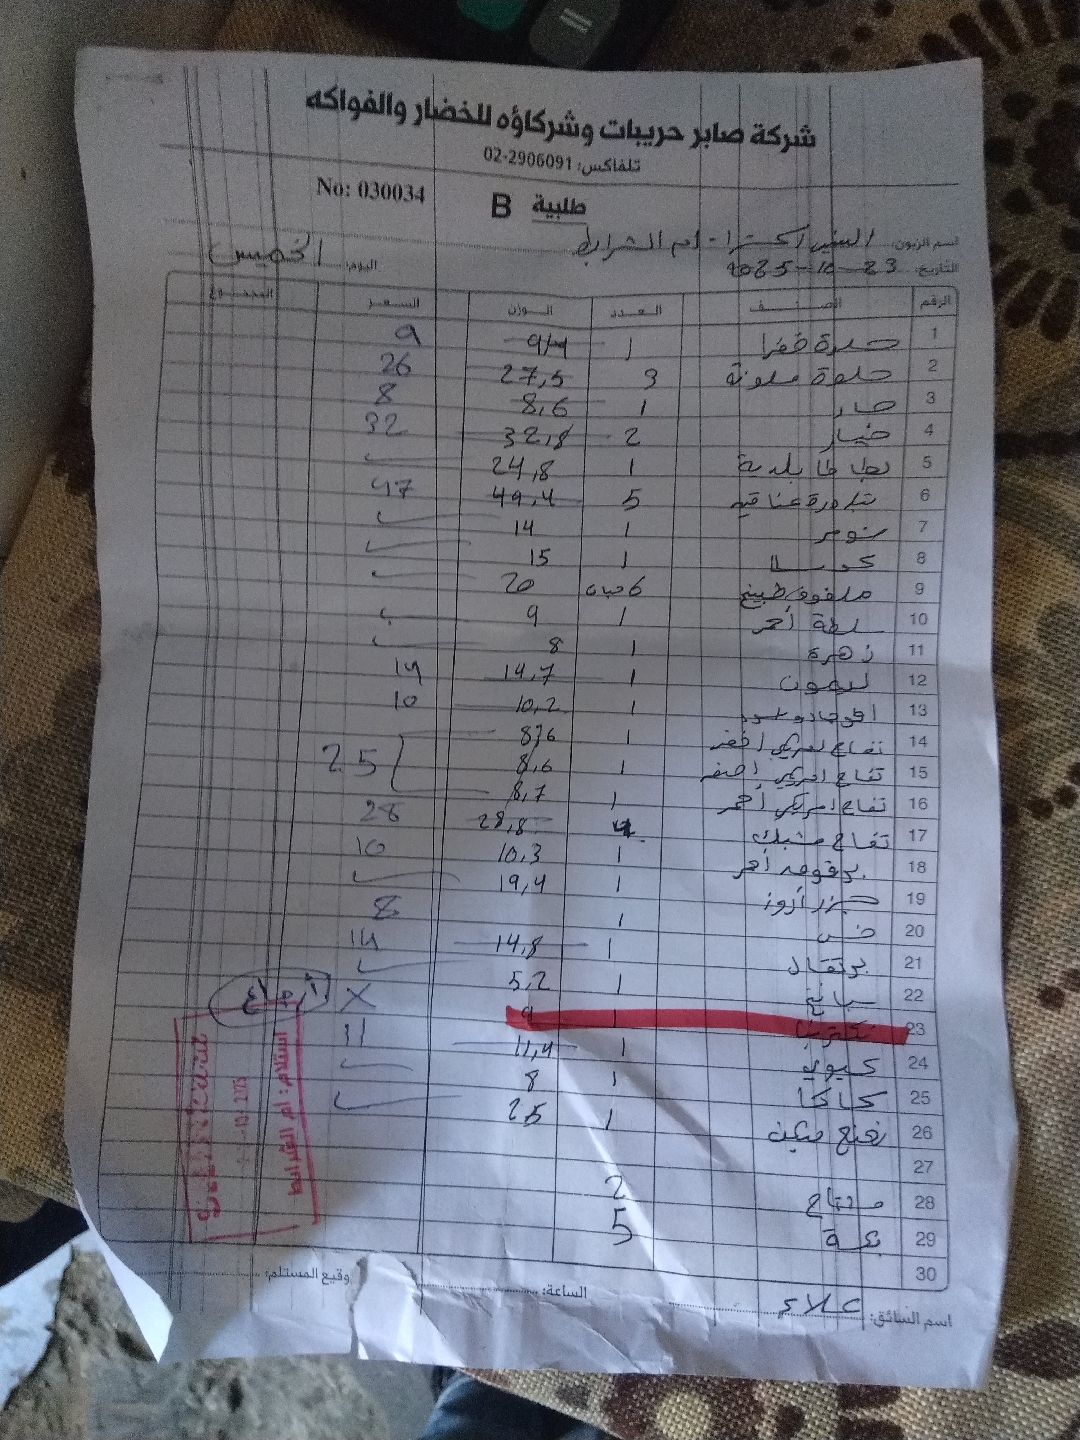 شركة صابر حريبات وشركاؤه للخضار والفواكه
تلفاكس: 02-2906091
No: 030034
طلبية B
اسم الزبون: اكسترا - ام الشرايط
التاريخ: 23-10-2025 اليوم: الخميس
الرقم الصنف العدد الوزن السعر المجموع
1 حلوة خضرا 1 9,4 9
2 حلوة ملونة 3 27,5 26
3 حار 1 8,6 8
4 خيار 2 32,8 32
5 بطاطا بلدية 1 24,8
6 بندورة عناقيد 5 49,4 47
7 ثوم 1 14
8 كوسا 1 15
9 ملفوف طبيخ 6 حبات 20
10 سلطة أحمر 1 9
11 زهرة 1 8
12 ليمون 1 14,7 14
13 افوجادو 1 10,2 10
14 تفاح امريكي اخضر 1 8,6
15 تفاح امريكي اصفر 1 8,6 25
16 تفاح امريكي أحمر 1 8,7
17 تفاح 4 28,8 28
18 برقوق أحمر 1 10,3 10
19 جزر 1 19,4
20 خس 1 8
21 برتقال 1 14,8 14
22 سبانخ 1 5,2
23 نكترينا 1 9 X ارجاع
24 كيوي 1 11,4 11
25 كاكا 1 8
26 نعنع 1 25
27
28 مشتاح 2
29 بكسة 5
30
استلام: ام الشرايط
اسم السائق: علاء الساعة: وقيع المستلم: